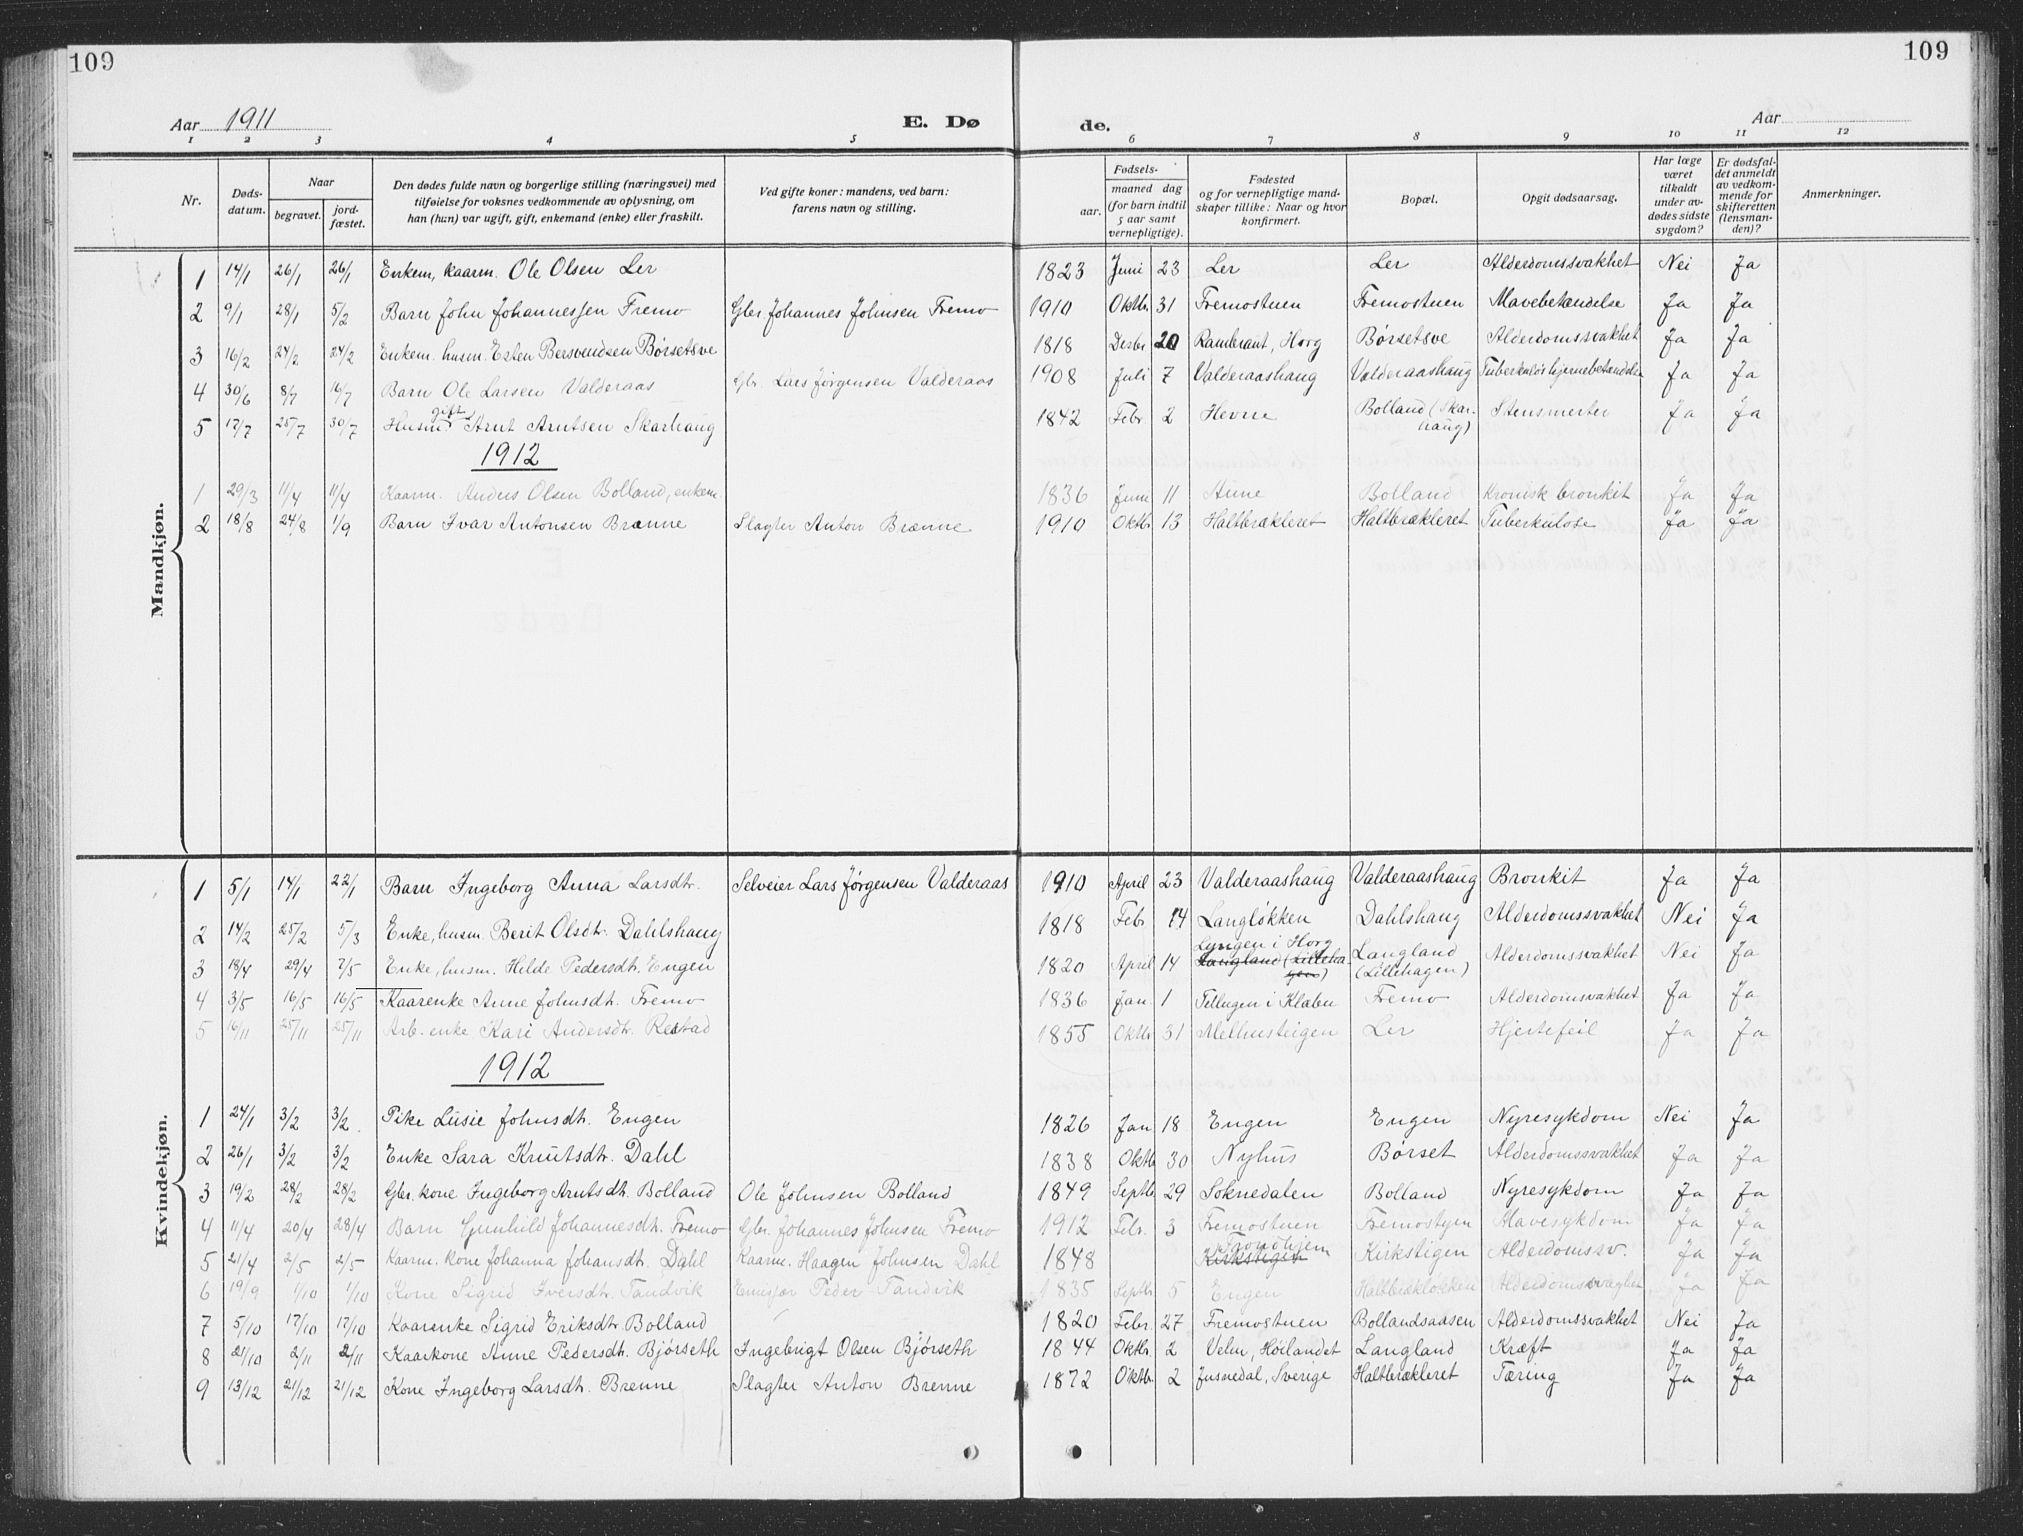 109
109
Aar 1911
E. Dø
de.
Aar
1 2 3 4 5 6 7 8 9 10 11 12
Nr.
Døds-datum.
Naar
begravet.
jord-fæstet.
Den dødes fulde navn og borgerlige stilling (næringsvei) med
tilføielse for voksnes vedkommende av oplysning, om
han (hun) var ugift, gift, enkemand (enke) eller fraskilt.
Ved gifte koner: mandens, ved barn:
farens navn og stilling.
Fødsels-
aar.
maaned dag
(for barn indtil
5 aar samt
vernepligtige).
Fødested
og for vernepligtige mand-
skaper tillike: Naar og hvor
konfirmert.
Bopæl.
Opgit dødsaarsag.
Har læge
været
tilkaldt
under av-
dødes sidste
sygdom?
Er dødsfal-
det anmeldt
av vedkom-
mende for
skifteretten
(lensman-
den)?
Anmerkninger.
Mandkjøn.
1 14/1 26/1 26/1 Enkem, kaarm. Ole Olsen Ler 1823 Juni 23 Ler Ler Alderdomssvakhet Nei Ja
2 9/1 28/1 5/2 Barn John Johannessen Fremo Gbr. Johannes Johnsen Fremo 1910 Oktb. 31 Fremostuen Fremostuen Mavebetændelse Ja Ja
3 16/2 24/2 24/2 Enkem. husm. Esten Bersvendsen Børsetsve 1818 Desbr 20 Rambraut, Horg Børsetsve Alderdomssvakhet Ja Ja
4 30/6 8/7 16/7 Barn Ole Larsen Valderaas Gbr. Lars Jørgensen Valderaas 1908 Juli 7 Valderaashaug Valderaashaug Tuberkuløs hjernebetændelse Ja Ja
5 17/7 25/7 30/7 Husm. gift Arnt Arntsen Skarhaug 1842 Febr. 2 Hevne Bolland (Skar-
haug) Stensmerter Ja Ja
1912
1 29/3 11/4 11/4 Kaarm. Anders Olsen Bolland, enkem. 1836 Juni 11 Aune Bolland Kronisk bronkit Ja Ja
2 18/8 24/8 1/9 Barn Ivar Antonsen Brænne Slagter Anton Brænne 1910 Oktb. 13 Haltbrækleret Haltbrækleret Tuberkulose Ja Ja
Kvindekjøn.
1 5/1 14/1 22/1 Barn Ingeborg Anna Larsdtr. Selveier Lars Jørgensen Valderaas 1910 April 23 Valderaashaug Valderaashaug Bronkit Ja Ja
2 14/2 25/2 5/3 Enke, husm. Berit Olsdtr. Dahlshaug 1818 Febr 14 Langløkken Dahlshaug Alderdomssvakhet Nei Ja
3 18/4 29/4 7/5 Enke, husm. Hilde Pedersdtr. Engen 1820 April 14 Lyngen i Horg
Langland (Lilleha-
gen) Langland
(Lillehagen) Alderdomssvakhet Nei Ja
4 3/5 16/5 16/5 Kaarenke Anne Johnsdtr. Fremo 1836 Jan. 1 Tellugen i Klæbu Fremo Alderdomsvakhet Ja Ja
5 16/11 25/11 25/11 Arb. enke Kari Andersdtr. Restad 1855 Oktb. 31 Melhussteigen Ler Hjertefeil Ja Ja
1912
1 24/1 3/2 3/2 Pike Lusie Johnsdtr. Engen 1826 Jan 18 Engen Engen Nyresykdom Nei Ja
2 26/1 3/2 3/2 Enke Sara Knutsdtr. Dahl 1838 Oktb 30 Nyhus Børset Alderdomssvakhet Ja Ja
3 19/2 28/2 28/2 Gbr. kone Ingeborg Arntsdtr. Bolland Ole Johnsen Bolland 1849 Septb. 29 Soknedalen Bolland Nyresykdom Ja Ja
4 11/4 20/4 28/4 Barn Gunhild Johannesdtr. Fremo Gbr. Johannes Johnsen Fremo 1912 Febr. 3 Fremostuen Fremostuen Mavesykdom Ja Ja
5 21/4 2/5 2/5 Kaarm. kone Johanna Johansdtr. Dahl Kaarm. Haagen Johnsen Dahl 1848 Trondhjem
Kirkstigen Kirkstigen Alderdomssv. Ja Ja
6 19/9 1/10 1/10 Kone Sigrid Iversdtr. Tandvik Emisær Peder Tandvik 1835 Septb. 5 Engen Haltbrækløkken Alderdomssvaghet Ja Ja
7 5/10 17/10 17/10 Kaarenke Sigrid Eriksdtr. Bolland 1820 Febr. 27 Fremostuen Bollandsaasen Alderdomssvakhet Nei Ja
8 21/10 2/11 2/11 Kaarkone Anne Pedersdtr. Bjørseth Ingebrigt Olsen Bjørseth 1844 Oktb. 2 Velm, Høilandet Langland Kræft Ja Ja
9 13/12 21/12 21/12 Kone Ingeborg Larsdtr. Brenne Slagter Anton Brenne 1872 Oktb. 2 Jusnedal, Sverige Haltbrækleret Tæring Ja Ja